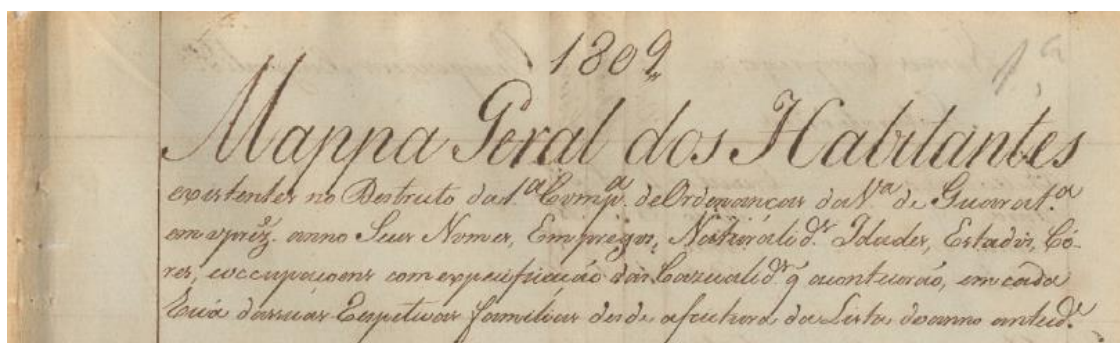 1809
Mappa Geral dos Habitantes
existentes no Destricto da 1.ª Comp.ª de Ordenanças da V.ª de Guarat.ª
em o prez. anno Seus Nomes, Empregos, Naturalid.ˢ Idades, Estados, Cô-
res, eoccupaçoens com expecificação das Cazualid.ˢ q acontecerão, em cada
húa das suas Espetivas familias desde a factura da Lista do anno anteced.ᵉ